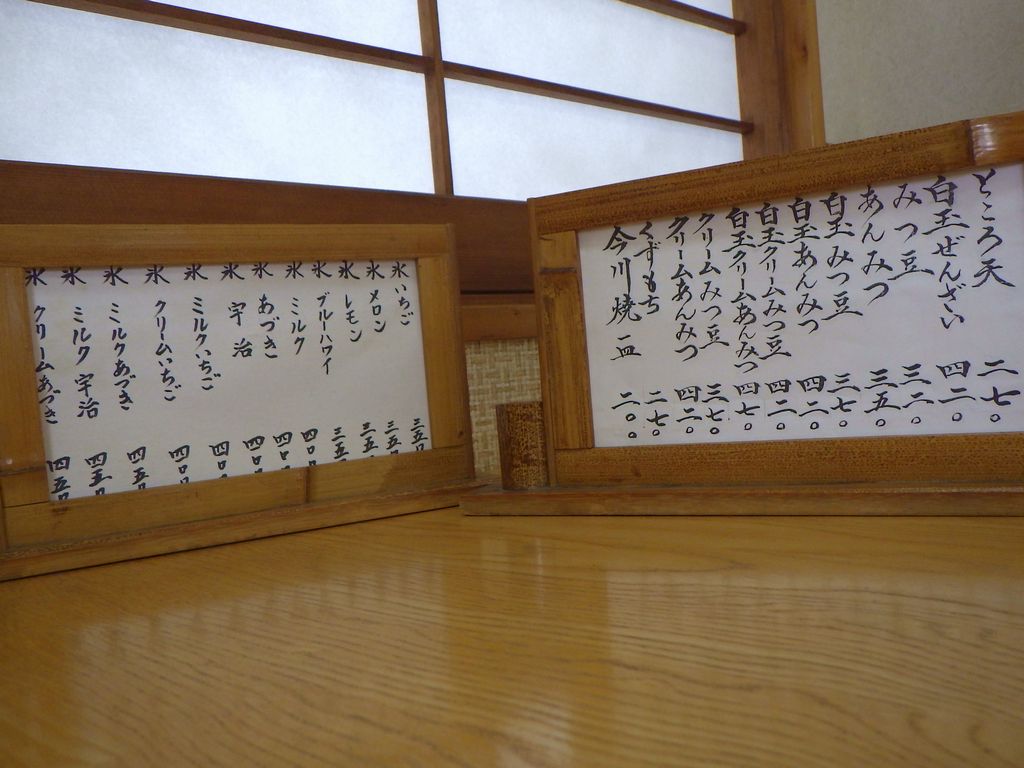 ところ天 二七〇
白玉ぜんざい 四二〇
みつ豆 三二〇
あんみつ 三五〇
白玉みつ豆 三七〇
白玉あんみつ 四二〇
白玉クリームみつ豆 四二〇
白玉クリームあんみつ 四七〇
クリームみつ豆 三七〇
クリームあんみつ 四二〇
くずもち 二七〇
今川焼 一皿 二〇〇
氷 いちご 三五〇
氷 メロン 三五〇
氷 レモン 三五〇
氷 ブルーハワイ 三五〇
氷 ミルク 四〇〇
氷 あづき 四〇〇
氷 宇治 四〇〇
氷 ミルクいちご 四〇〇
氷 クリームいちご 四〇〇
氷 ミルクあづき 四五〇
氷 ミルク宇治 四五〇
氷 クリームあづき 四五〇